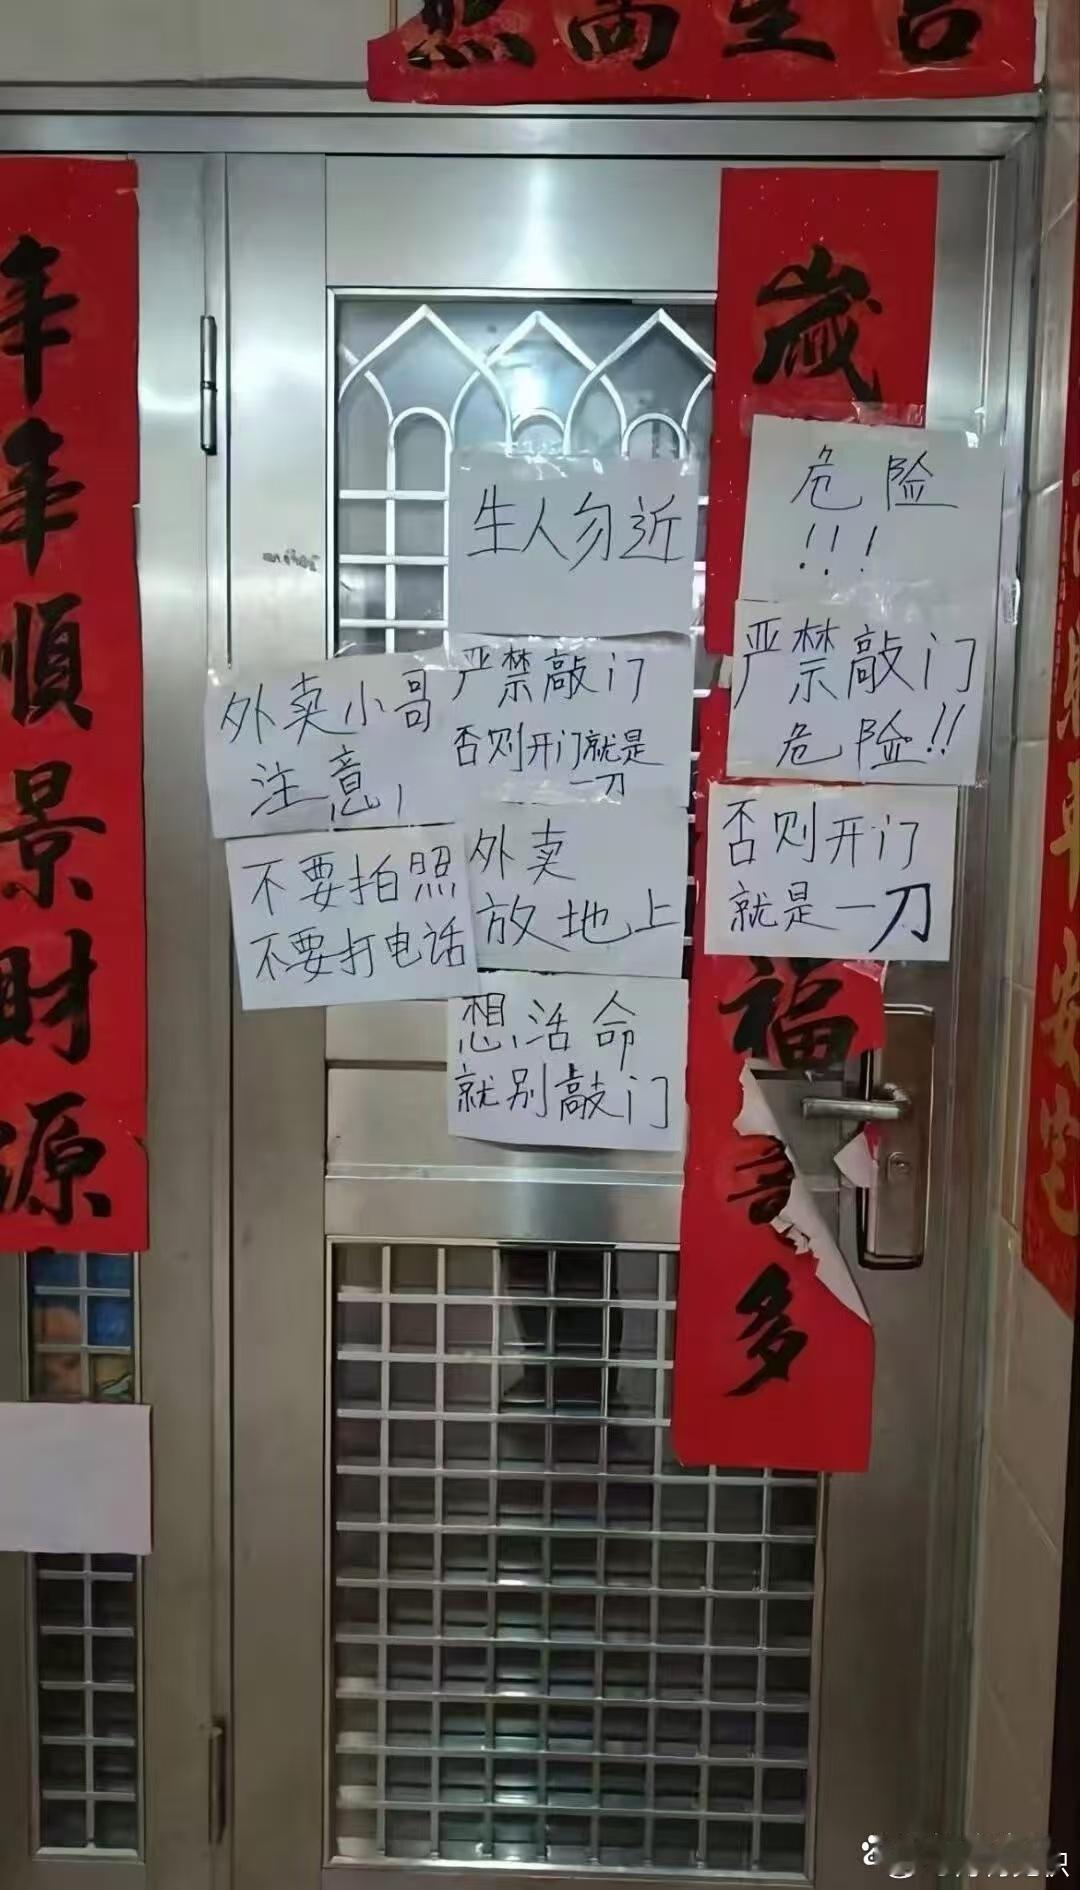 照高星吉
年年順景財源
歲
福
多
生人勿近
危险
!!!
严禁敲门
危险!!
否则开门
就是一刀
外卖小哥
注意!
严禁敲门
否则开门就是
一刀
不要拍照
不要打电话
外卖
放地上
想活命
就别敲门
平安宅